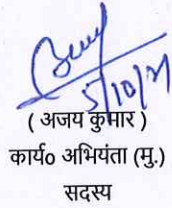 5/10/21
( अजय कुमार )
कार्य० अभियंता (मु.)
सदस्य